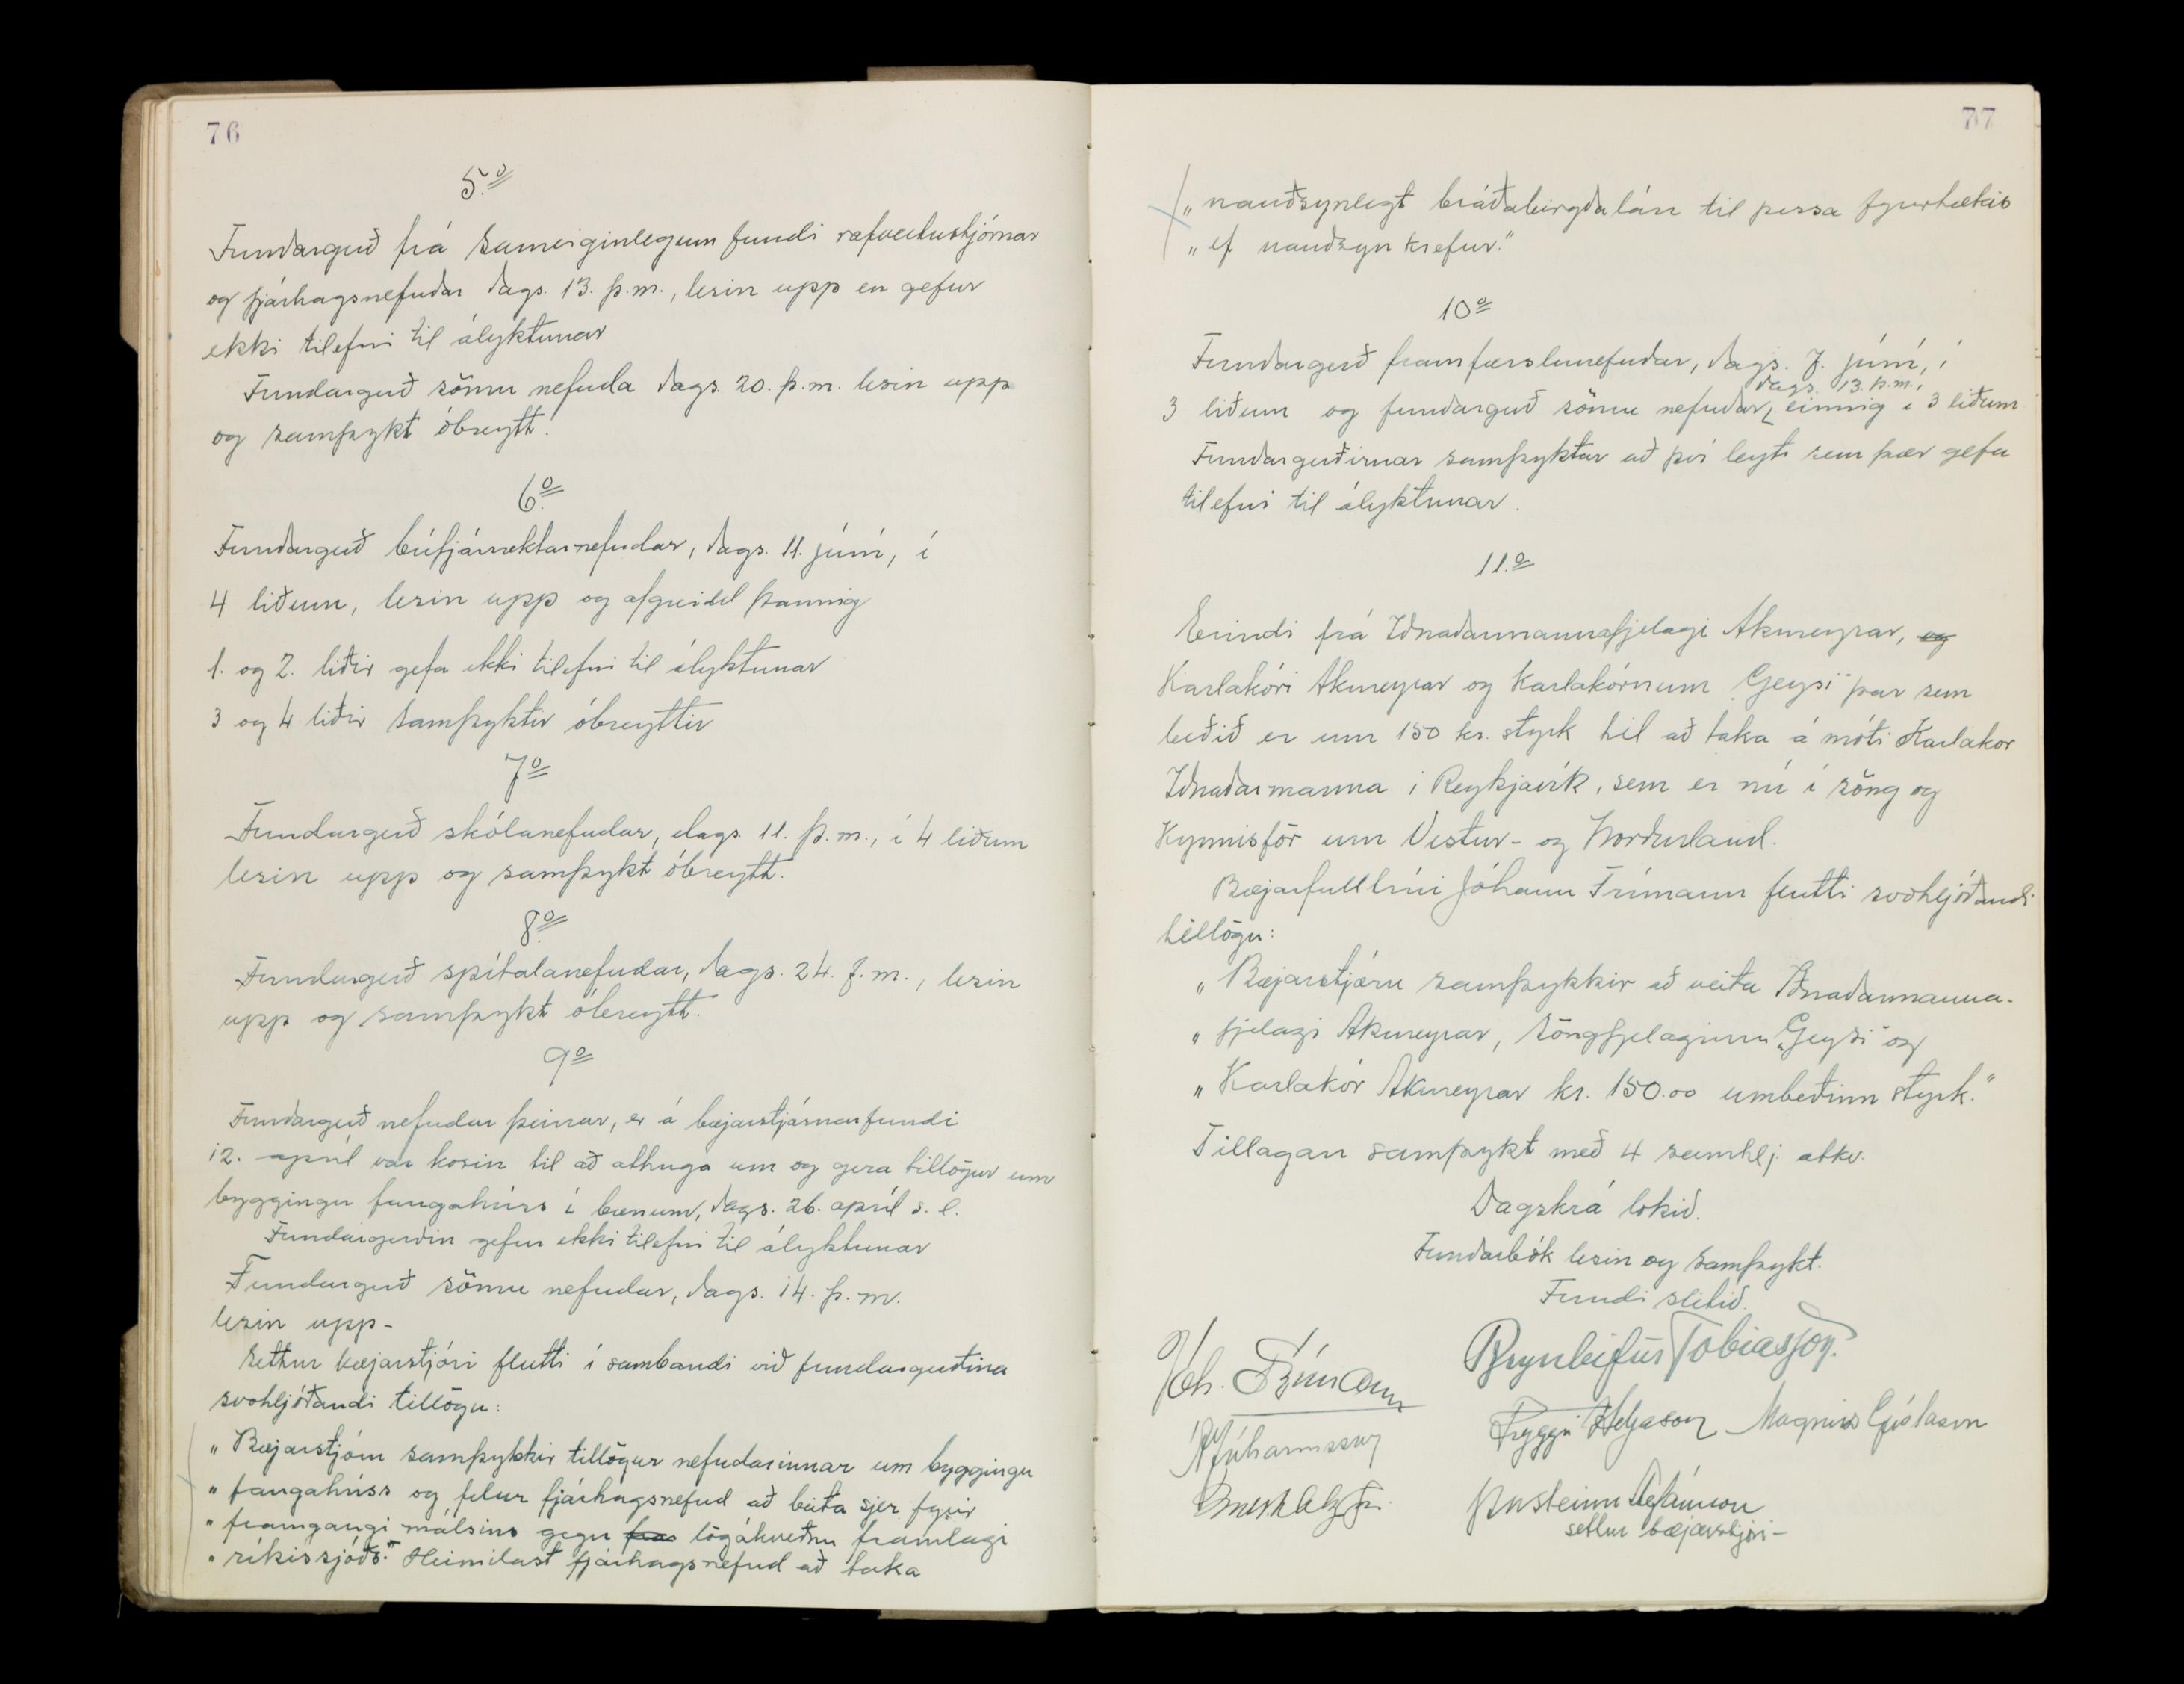 76
5.º
Fundargerð frá sameiginlegum fundi rafveitustjórnar
og fjárhagsnefndar dags. 13. þ.m., lesin upp en gefur
ekki tilefni til ályktunar
Fundargerð sömu nefnda dags. 20. þ.m. lesin upp
og samþykt óbreytt.
6.º
Fundargerð búfjárræktarnefndar, dags. 11. júní, í
4 liðum, lesin upp og afgreidd þannig
1. og 2. liðir gefa ekki tilefni til ályktunar
3 og 4 liðir samþyktir óbreyttir
7º
Fundargerð skólanefndar, dags. 11. þ.m., í 4 liðum
lesin upp og samþykt óbreytt.
8.º
Fundargerð spítalanefndar, dags. 24. f.m., lesin
upp og samþykt óbreytt.
9º
Fundargerð nefndar þeirrar, er á bæjarstjórnarfundi
12. apríl var kosin til að athuga um og gera tillögur um
byggingu fangahúss í bænum, dags. 26. apríl s.l.
Fundargerðin gefur ekki tilefni til ályktunar
Fundargerð sömu nefndar, dags. 14. þ.m.
lesin upp-
Settur bæjarstjóri flutti í sambandi við fundargerðina
svohljóðandi tillögu:
„ Bæjarstjórn samþykkir tillögur nefndarinnar um byggingu
„ fangahúss og felur fjárhagsnefnd að beita sjer fyrir
„ framgangi málsins gegn fra lögákveðnu framlagi
„ ríkissjóðs." Heimilast fjárhagsnefnd að taka
77
„ nauðsynlegt bráðabirgðalán til þessa fyrirtækis
„ ef nauðsyn krefur."
10º
Fundargerð framfærslunefndar, dags. 7. júní, í
dags. 13. þ.m.,
3 liðum og fundargerð sömu nefndar, einnig í 3 liðum
Fundargerðirnar samþyktar að því leyti sem þær gefa
tilefni til ályktunar.
11.º
Erindi frá Iðnaðarmannafjelagi Akureyrar, og
Karlakóri Akureyrar og Karlakórnum „Geysi" þar sem
beðið er um 150 kr. styrk til að taka á móti Karlakor
Iðnaðarmanna i Reykjavík, sem er nú í söng og
Kynnisför um Vestur- og Norðurland.
Bæjarfulltrúi Jóhann Frímann flutti svohljóðandi
tillögu:
„ Bæjarstjórn samþykkir að veita Iðnaðarmanna-
„ fjelagi Akureyrar, söngfjelaginu „Geysi" og
„ Karlakór Akureyrar kr. 150.00 umbeðinn styrk."
Tillagan samþykt með 4 samhlj. atkv.
Dagskrá lokið.
Fundarbók lesin og samþykt.
Fundi slitið.
Jóh. Frímann
Brynleifur Tobiasson.
Tryggvi Helgason
Magnús Gíslason
Jóhannsson
Þorsteinn Stefánsson
settur bæjarstjóri-